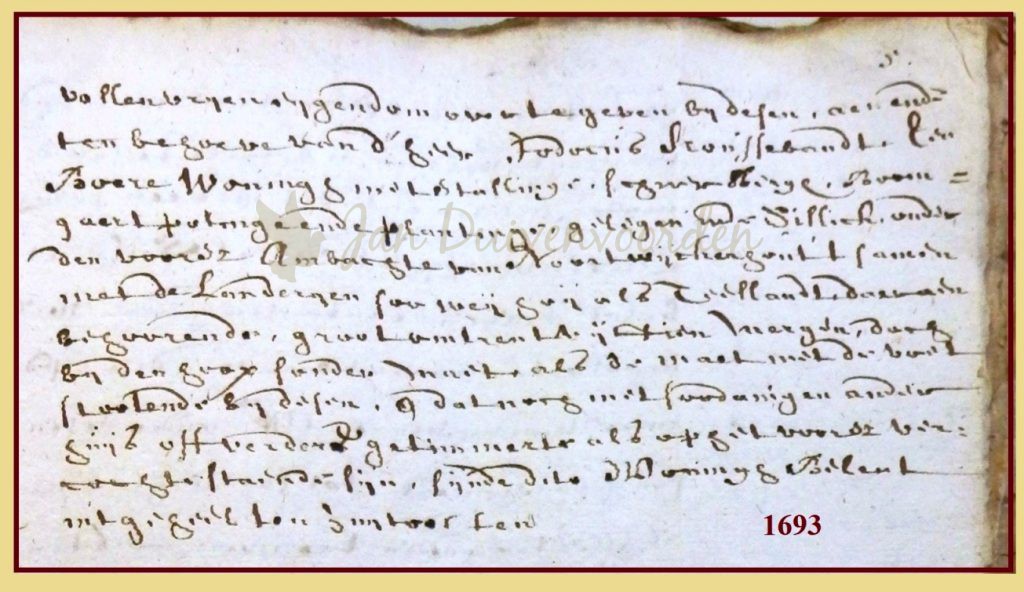 vollen vrijen eijgendom over te geven bij desen, aen ende
ten behoeve van d'heer Jodorus
Boere Woninge met stallinge, schuer Berge, Boom =
gaert potinge ende plantinge gelegen inde Sillick onder
den voorsz Ambachte van Noortwijckerhout t samen
met de Landerijen soo weij hoij als Teellandt daer aen
behoorende, groot omtrent Mergen, doch
bij den hoop sonder maet als de maet met de voet
stootende bij desen, & dat noch met soodanigen ander
huijs off verders getimmerte als op het voorsz ver =
cochte staende sijn, sijnde dito Woningh Belent
Jan Duivenvoorden
1693